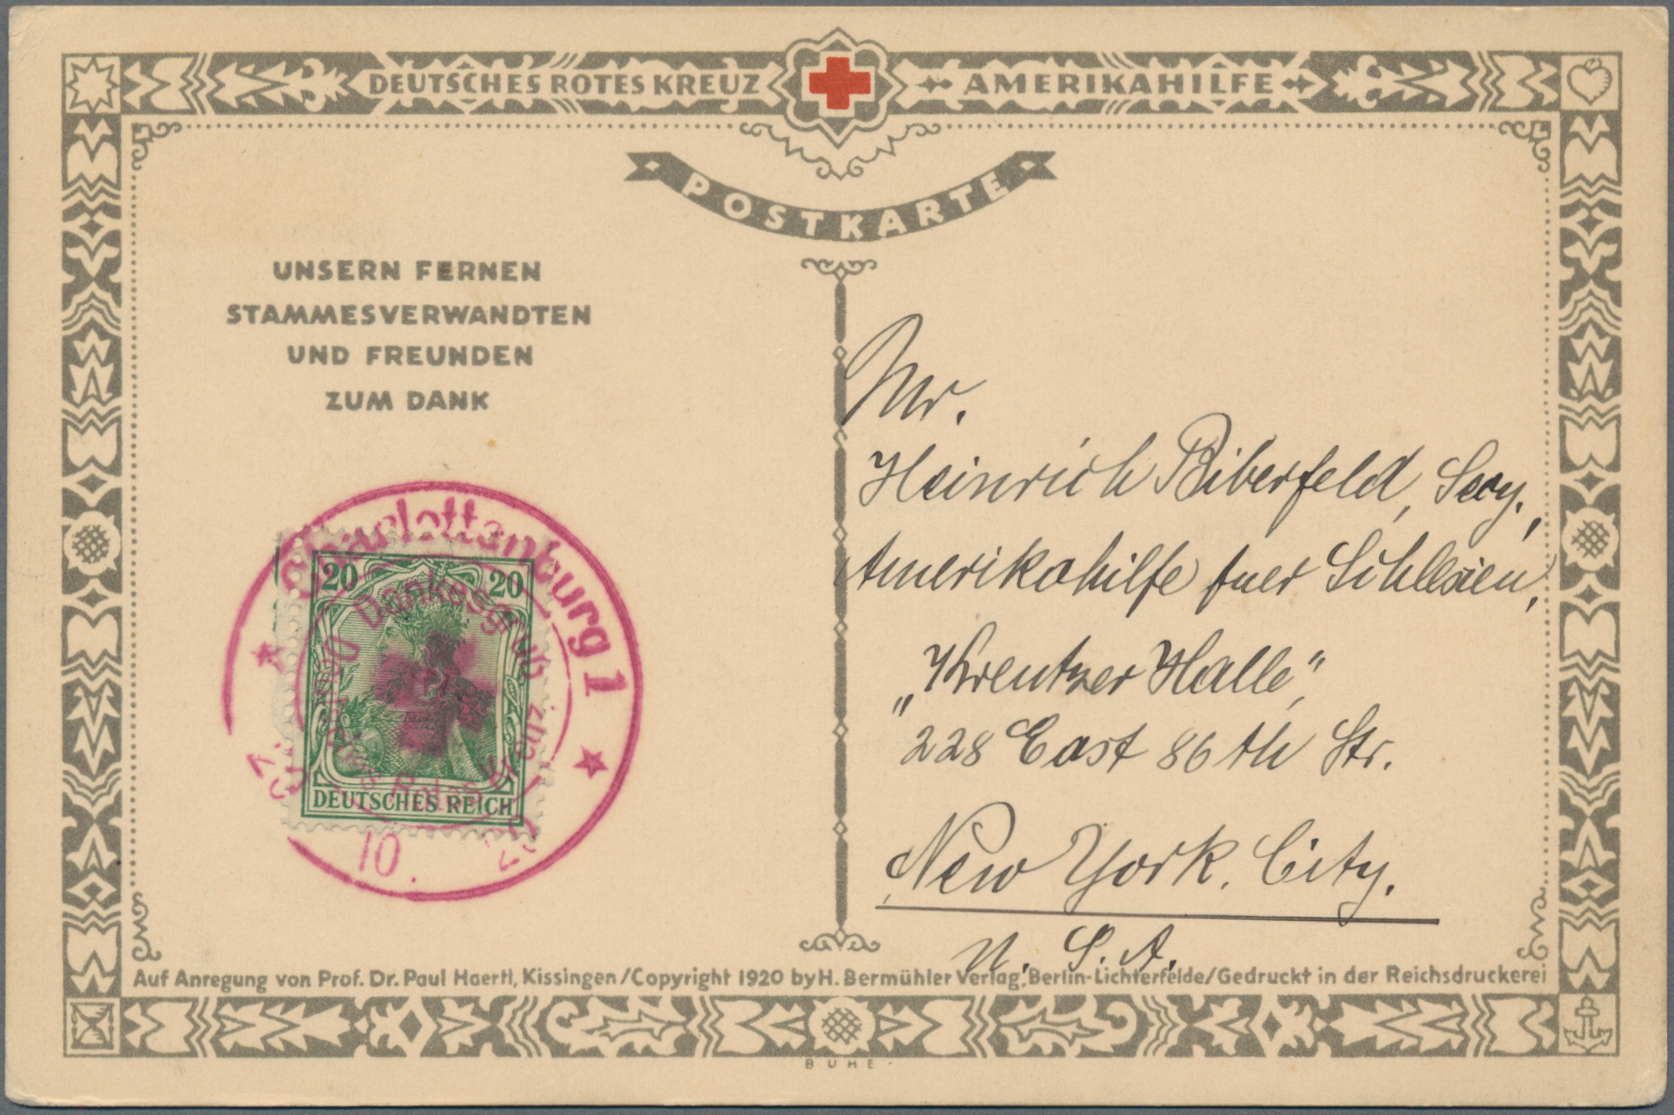 DEUTSCHES ROTES KREUZ AMERIKAHILFE
POSTKARTE
UNSERN FERNEN
STAMMESVERWANDTEN
UND FREUNDEN
ZUM DANK
Mr.
Heinrich Biberfeld, Secy.,
Amerikahilfe fuer Schlesien,
"Kreutzer Halle",
228 East 86th Str.
New York City.
U. S. A.
Charlottenburg 1
20 20
Rotes
DEUTSCHES REICH
10.
Auf Anregung von Prof. Dr. Paul Haertl, Kissingen/Copyright 1920 by H. Bermühler Verlag, Berlin-Lichterfelde/Gedruckt in der Reichsdruckerei
BUHE